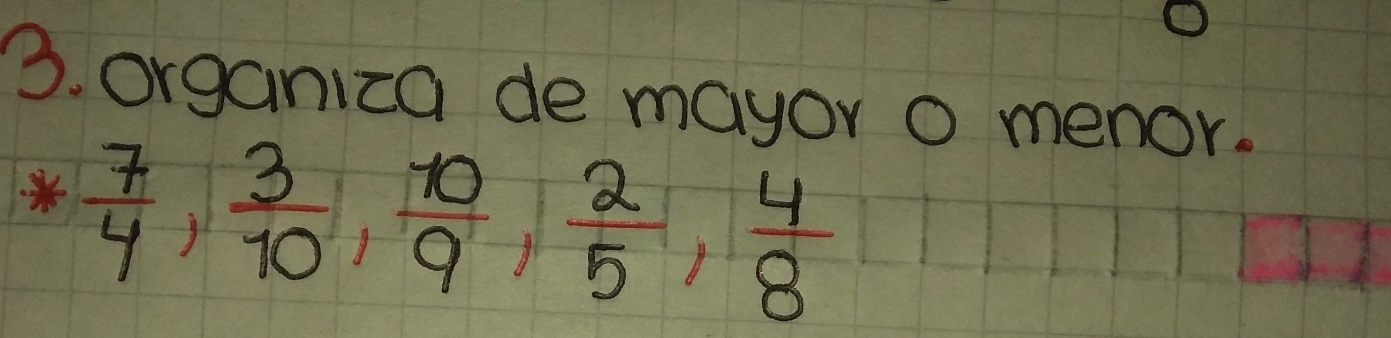 3. organiza de mayor o menor.
* 7/4, 3/10, 10/9, 2/5, 4/8